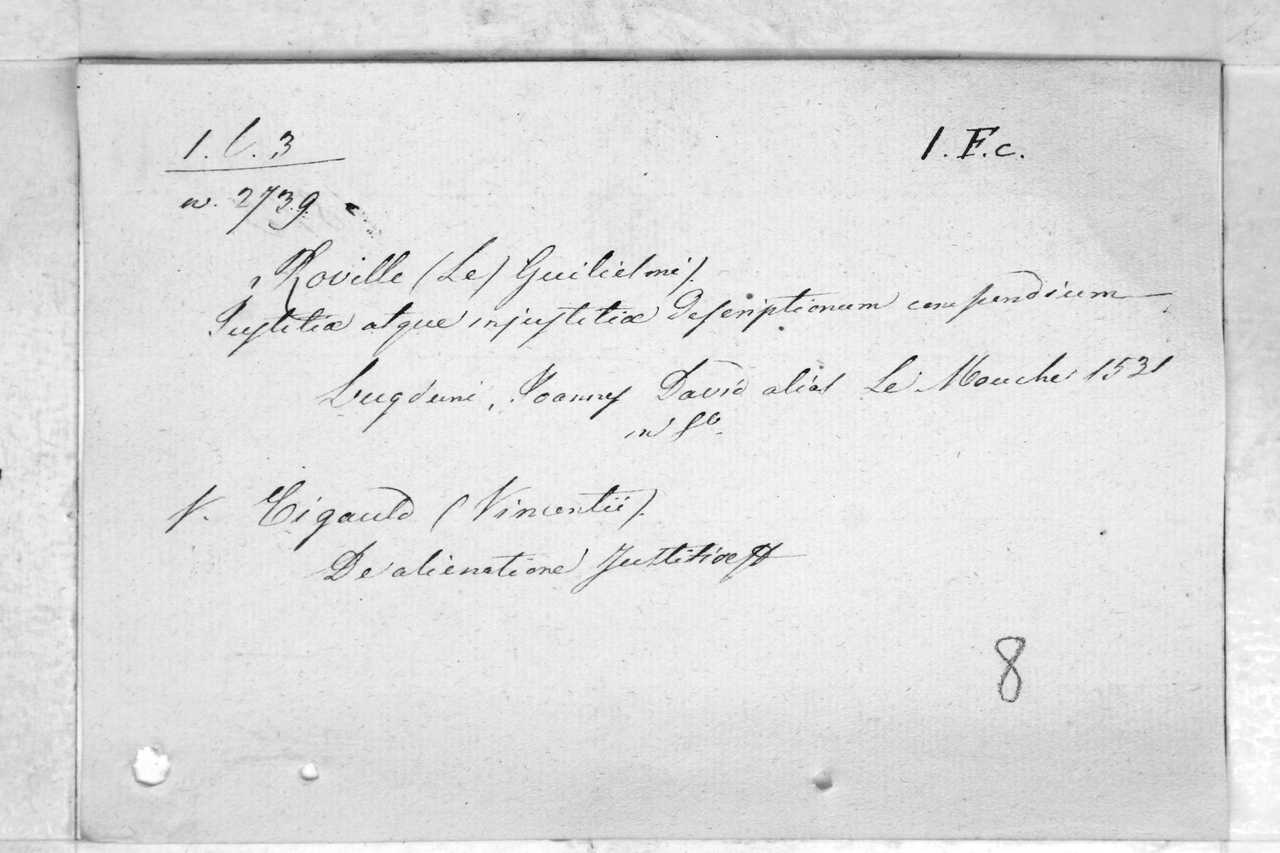 1. C. 3
1. F. c.
n. 2739
Roville (Le) Guilielmi).
Justitiæ atque injustitiæ Descriptionum compendium
Lugduni, Joannes David alias Le Mouche 1531
in f°.
V. Tigauld (Vincentii).
De alienatione Justitiæ
8